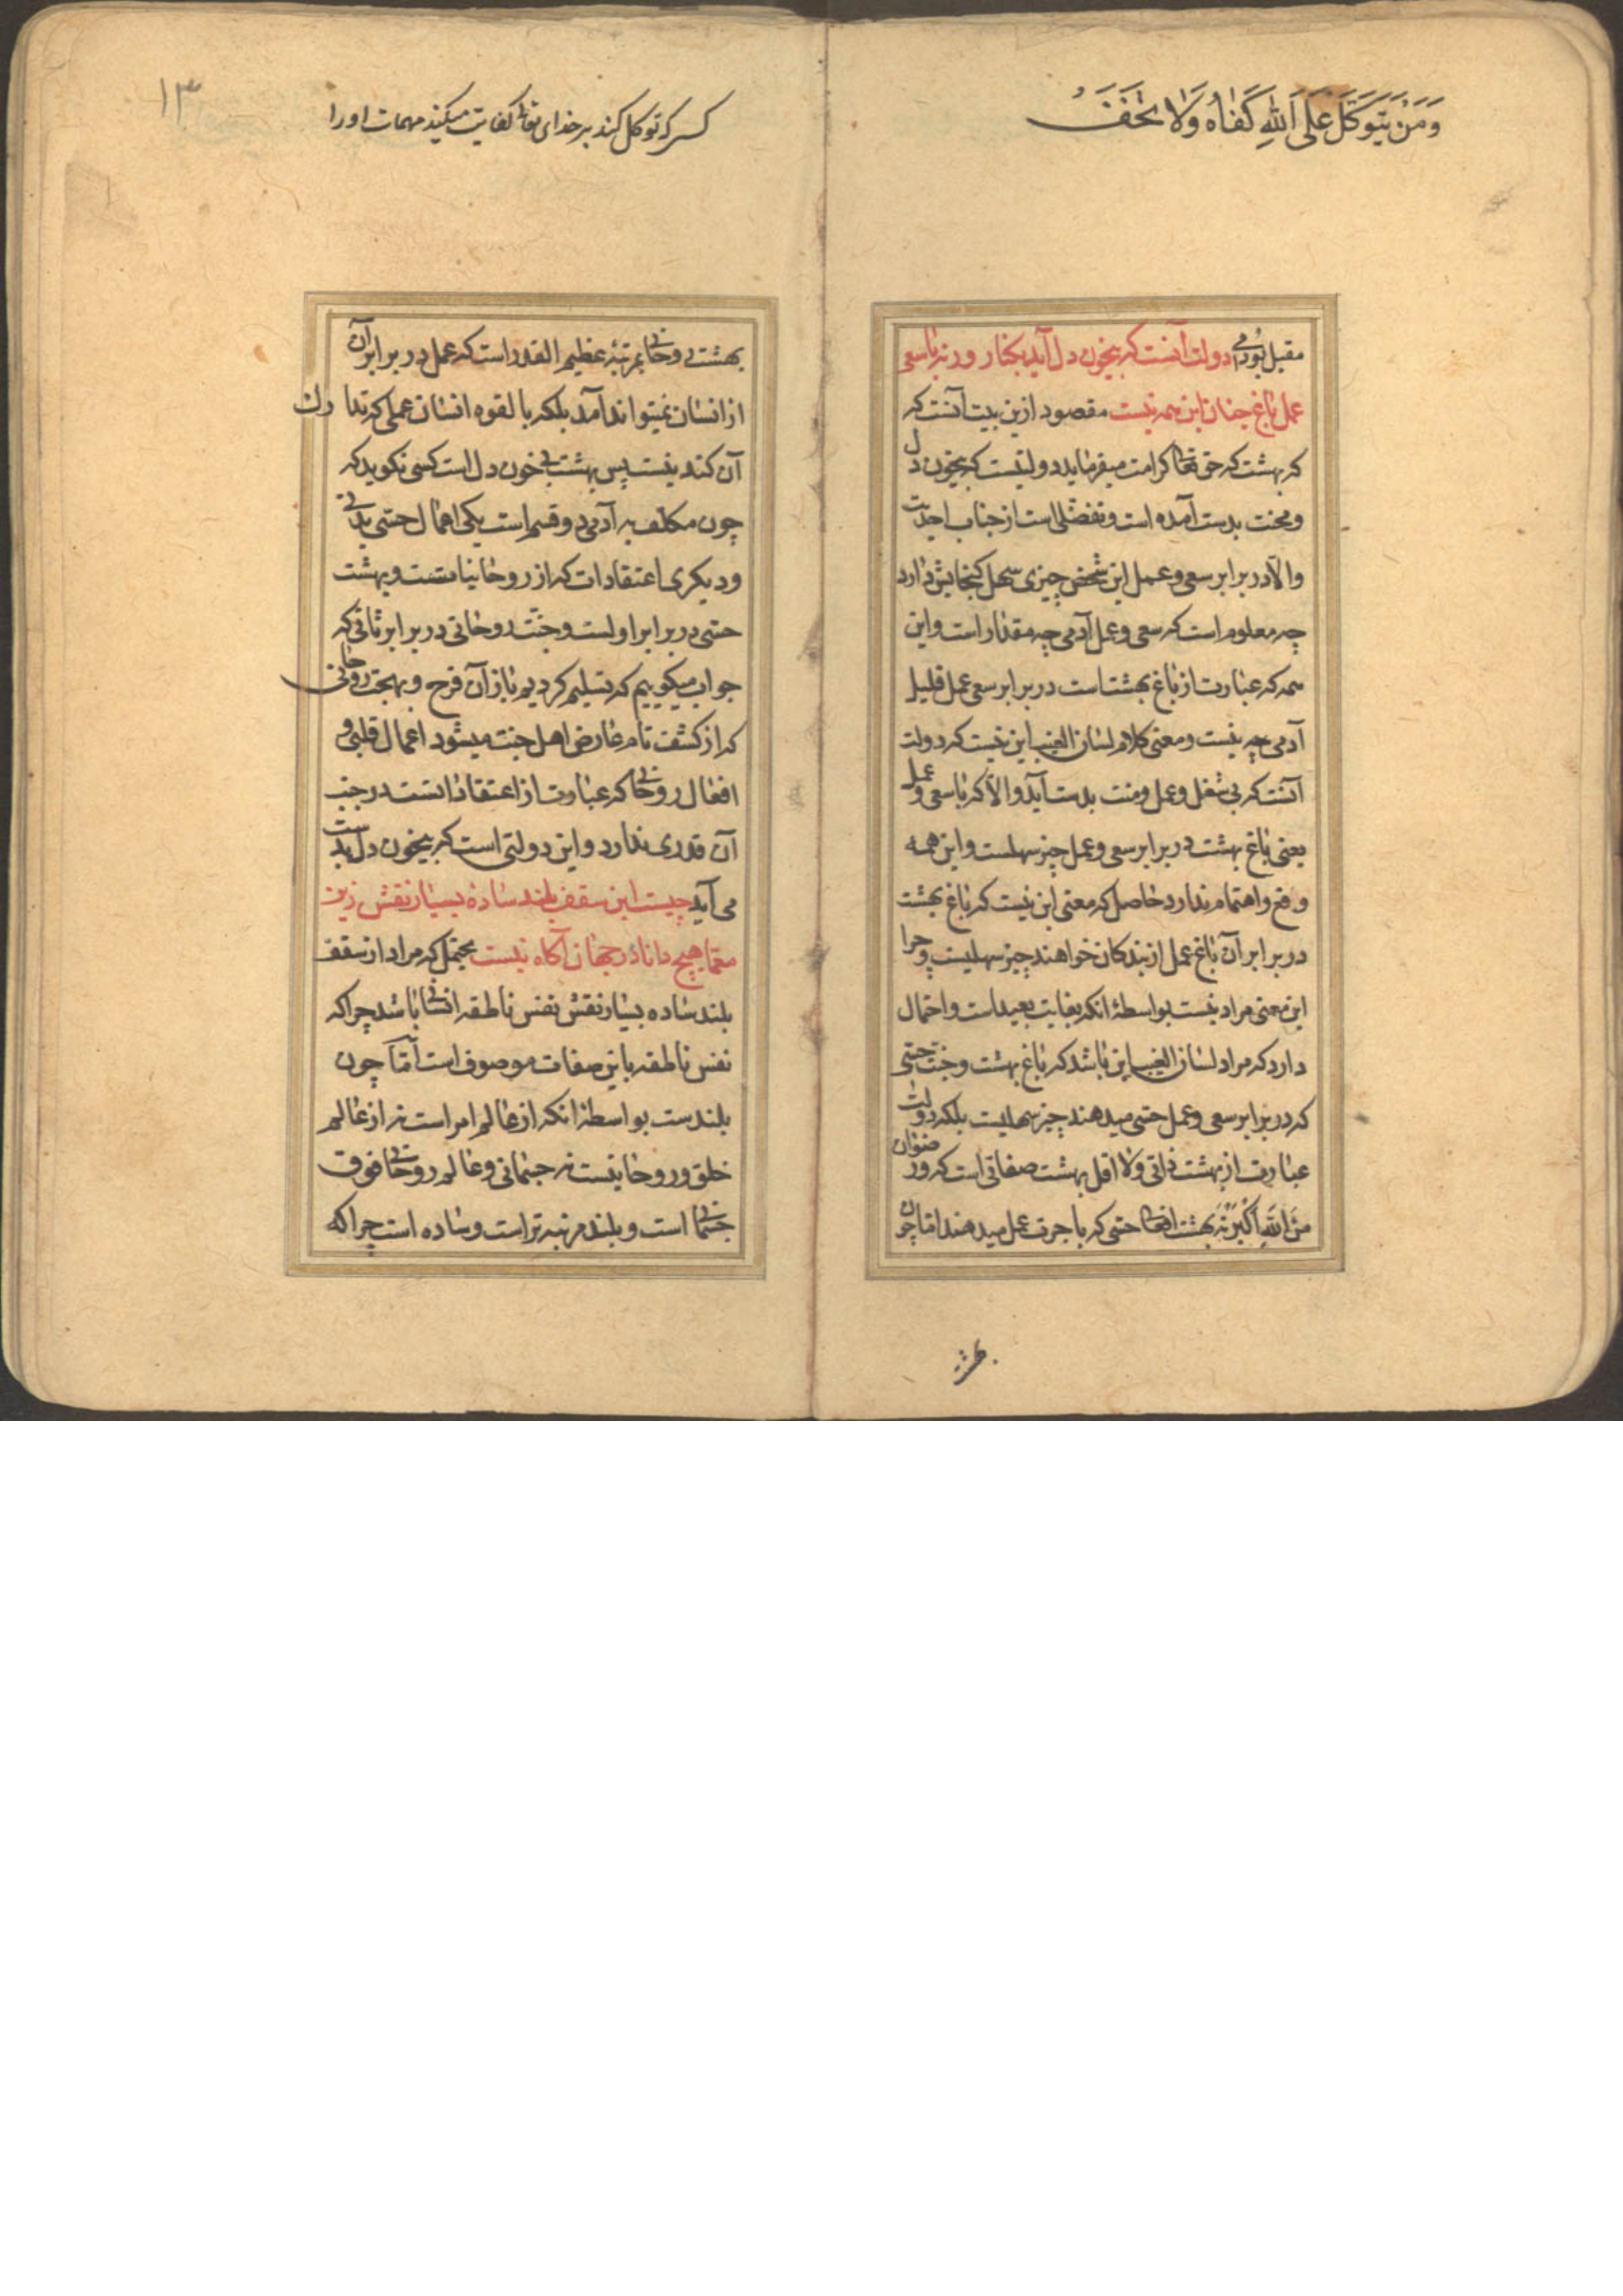 وَمَنْ يَتَوَكَّلْ عَلَى اللّٰهِ كَفَاهُ وَلَا تَخَفْ
مقبل بودمی دولت آنست که بیخون دل آید بکنار ورنه با سعی
عمل باغ جنان این همه نیست مقصود ازین بیت آنست که
که بهشت که حق تعالی کرامت میفرماید دولتیست که بیخون دل
ومحنت بدست آمده است وتفضلی است از جناب احدیت
والا در برابر سعی وعمل این شخص چیزی سهل کنجایش دارد
چه معلوم است که سعی وعمل آدمی چه مقدار است واین
همه که عبارت از باغ بهشت است در برابر سعی عمل قلیل
آدمی چه نیست ومعنی کلام لسان الغیب این نیست که دولت
آنست که بی شغل وعمل ومنت بدست آید والا که با سعی وعمل
یعنی باغ بهشت در برابر سعی وعمل چیز سهلست واین همه
وقع واهتمام ندارد حاصل که معنی این نیست که باغ بهشت
در برابر آن باغ عمل از بندکان خواهند چیز سهلیست وچرا
این معنی مراد نیست بواسطهٔ انکه بغایت بعید است واحتمال
دارد که مراد لسان الغیب این باشد که باغ بهشت وجنت حسّی
که در برابر سعی وعمل حسّی میدهند چیز سهلیست بلکه دولت
عبارت از بهشت ذاتی ولا اقل بهشت صفاتی است که ورضوان
مِنَ اللّٰهِ اَکْبَرُ نه بهشت افعالی حسّی که باجرت عمل میدهند اما چون
بهشتی
۱۳
کسی که توکل کند بر خدای تعالی کفایت میکند مهمات اورا
بهشت روحانی بمرتبهٔ عظیم القدر است که عمل در برابر آن
از انسان نمیتواند آمد بلکه بالقوه انسان عملی که تدارک
آن کند نیست پس بهشت بی خون دل است کسی نکوید که
چون مکلف به آدمی دو قسم است یکی اعمال حسّی بدنی
ودیکری اعتقادات که از روحانیاتست وبهشت
حسّی در برابر اولست وجنت روحانی در برابر ثانی که
جواب میکوییم که تسلیم کردیم باز آن فرح وبهجت روحانی
که از کشف تام عارض اهل جنت میشود اعمال قلبی و
افعال روحانی که عبارت از اعتقاداتست در جنب
آن قدری ندارد واین دولتی است که بیخون دل بدست
می آید چیست این سقف بلند سادهٔ بسیار نقش زین
معمّا هیچ دانا در جهان آکاه نیست یحتمل که مراد از سقف
بلند ساده بسیار نقش نفس ناطقه انسانی باشد چراکه
نفس ناطقه باین صفات موصوف است امّا چون
بلندست بواسطهٔ انکه از عالم امر است نه از عالم
خلق وروحانیست نه جسمانی وعالم روحانی فوق
جسمانی است وبلند مرتبه تر است وساده است چراکه